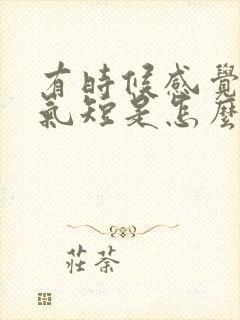 有時候感覺
氣短是怎麼
莊荼